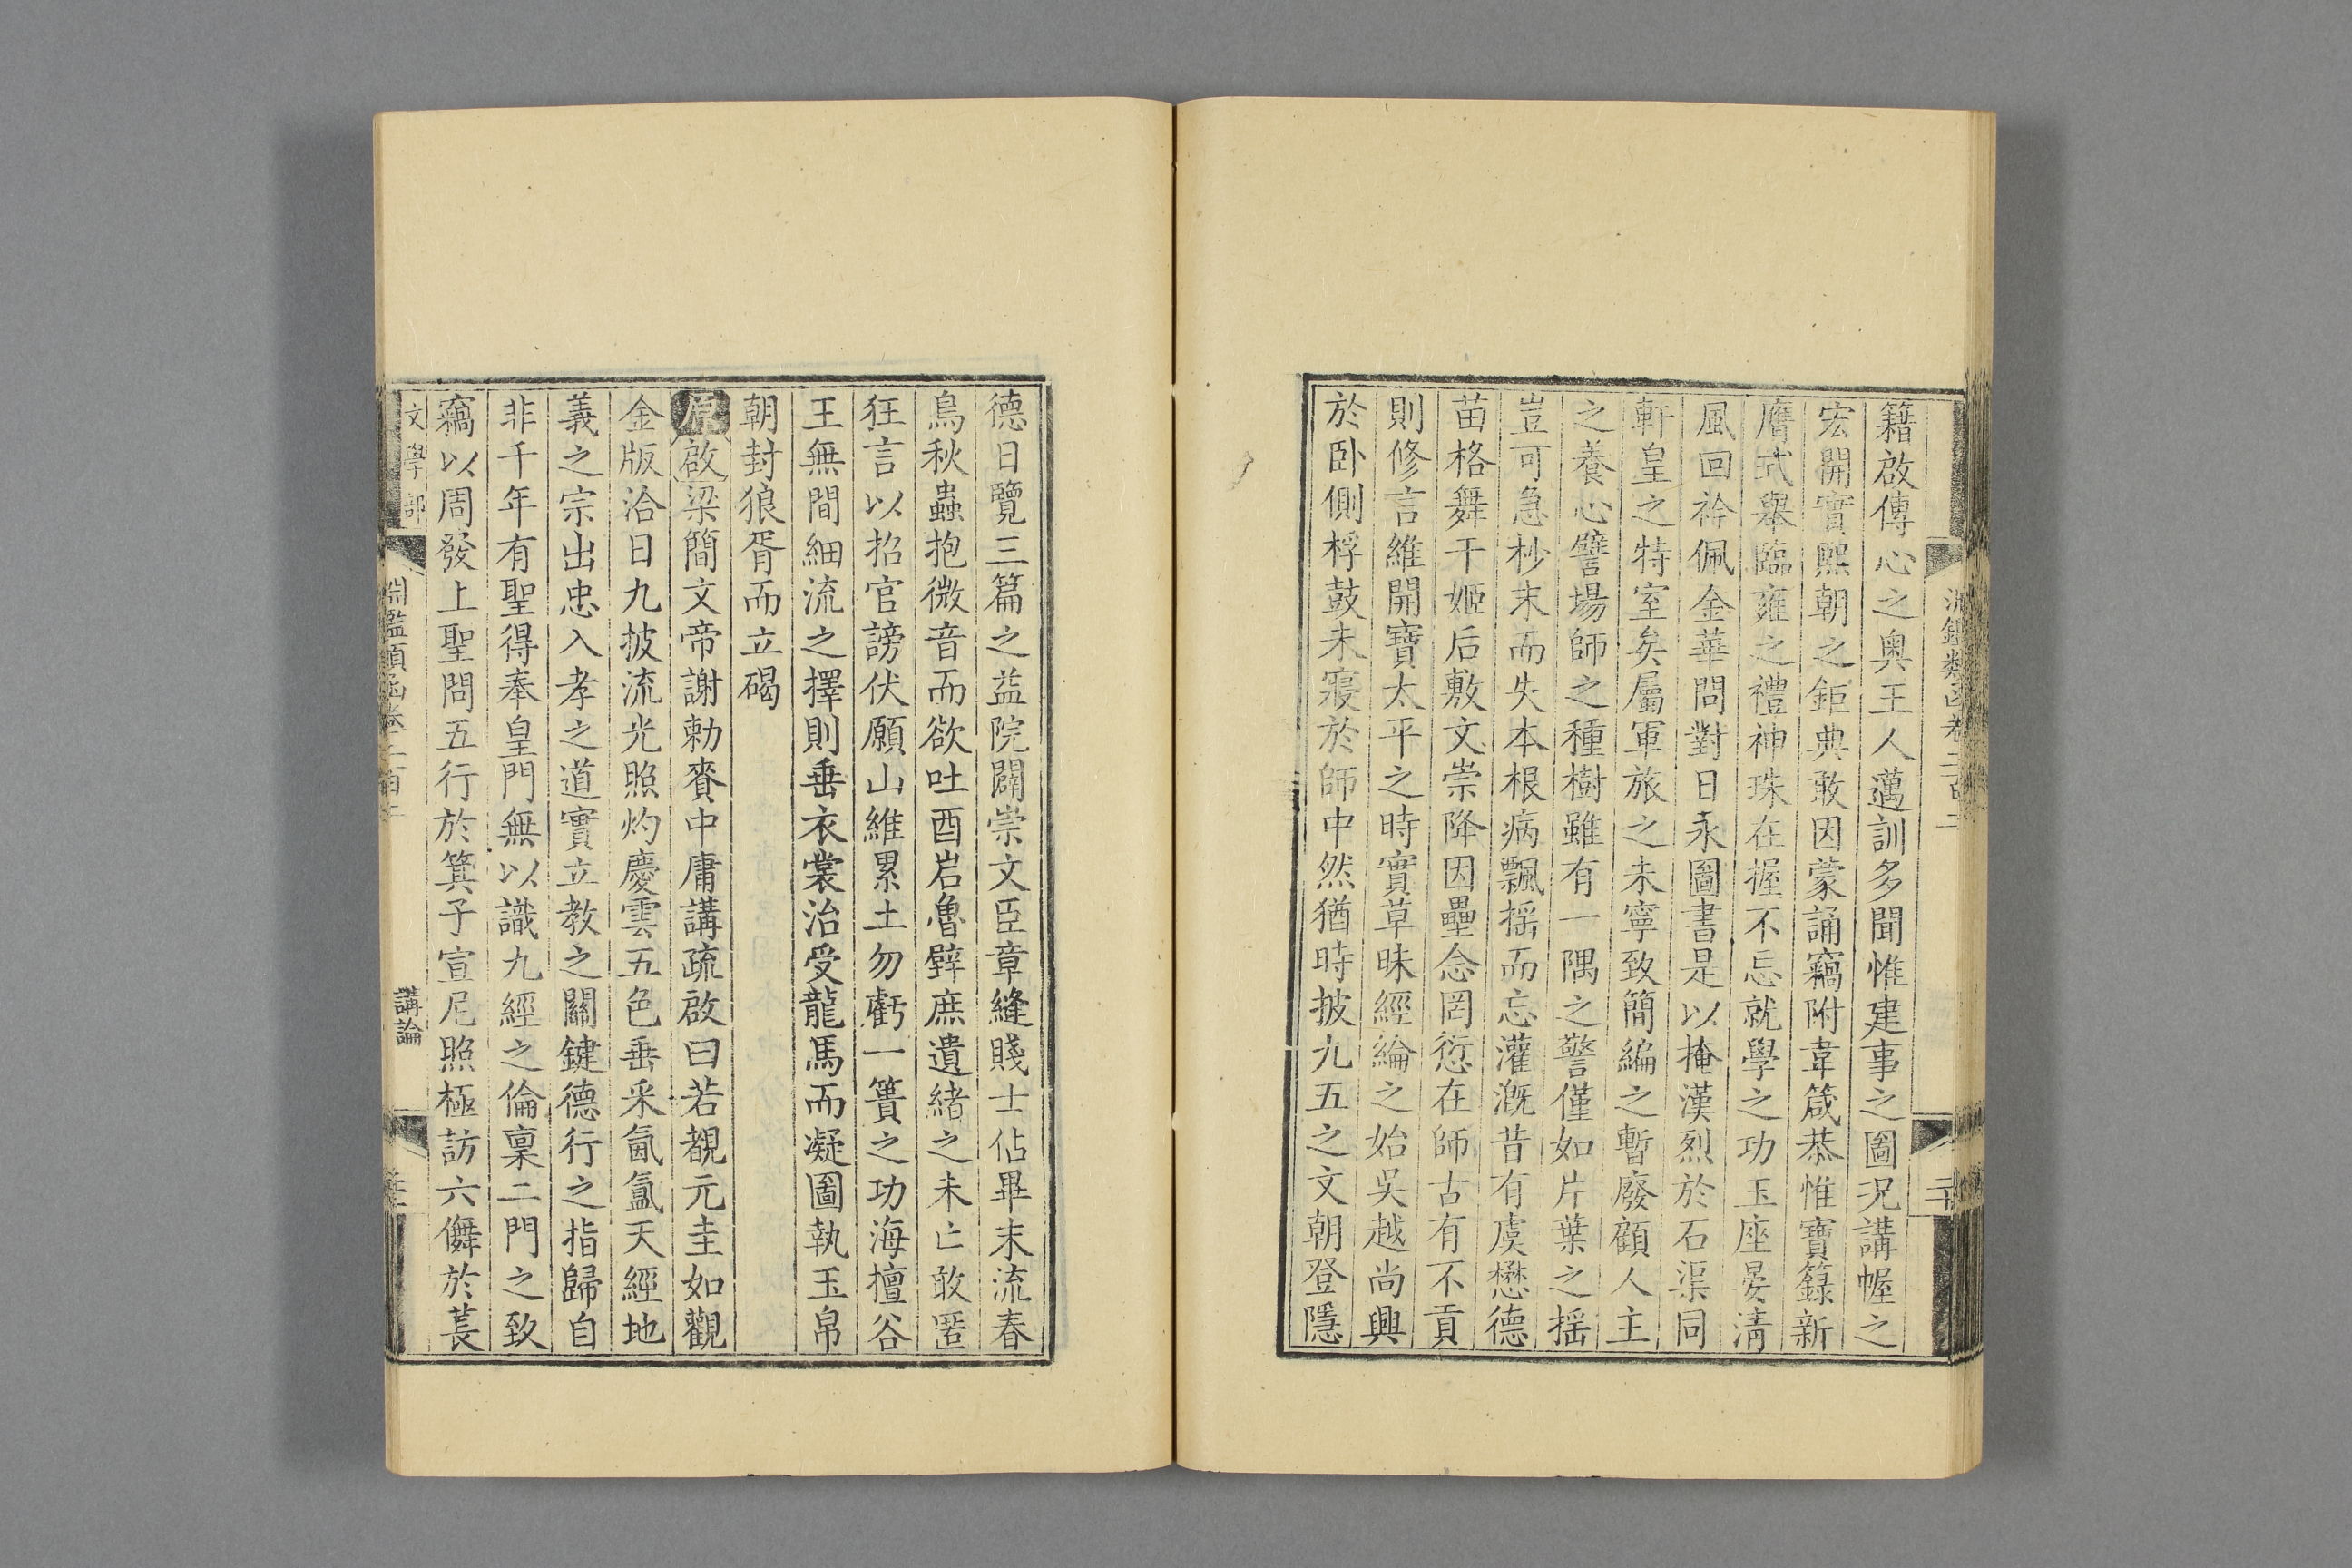 籍啟傳心之奧王人邁訓多聞惟建事之圖況講幄之
宏開實熙朝之鉅典敢因蒙誦竊附韋箴恭惟寶籙新
膺式舉臨雍之禮神珠在握不忘就學之功玉座晏清
風回衿佩金華問對日永圖書是以掩漢烈於石渠同
軒皇之特室矣屬軍旅之未寧致簡編之暫廢顧人主
之養心譬場師之種樹雖有一隅之警僅如片葉之搖
豈可急杪末而失本根病飄搖而忘灌溉昔有虞懋德
苗格舞干姬后敷文崇降因壘念罔愆在師古有不貢
則修言維開寶太平之時實草昧經綸之始吳越尚興
於卧側桴鼓未寢於師中然猶時披九五之文朝登隱
德日覽三篇之益院闢崇文臣章縫賤士佔畢末流春
鳥秋蟲抱微音而欲吐酉岩魯壁庶遺緒之未亡敢匿
狂言以招官謗伏願山維累土勿虧一簣之功海擅谷
王無間細流之擇則垂衣裳治受龍馬而凝圖執玉帛
朝封狼胥而立碣
原啟梁簡文帝謝勅賚中庸講疏啟曰若覩元圭如觀
金版洽日九披流光照灼慶雲五色垂采氤氳天經地
義之宗出忠入孝之道實立教之關鍵德行之指歸自
非千年有聖得奉皇門無以識九經之倫稟二門之致
竊以周發上聖問五行於箕子宣尼照極訪六儛於萇
文學部
淵鑑類函卷二百二
講論